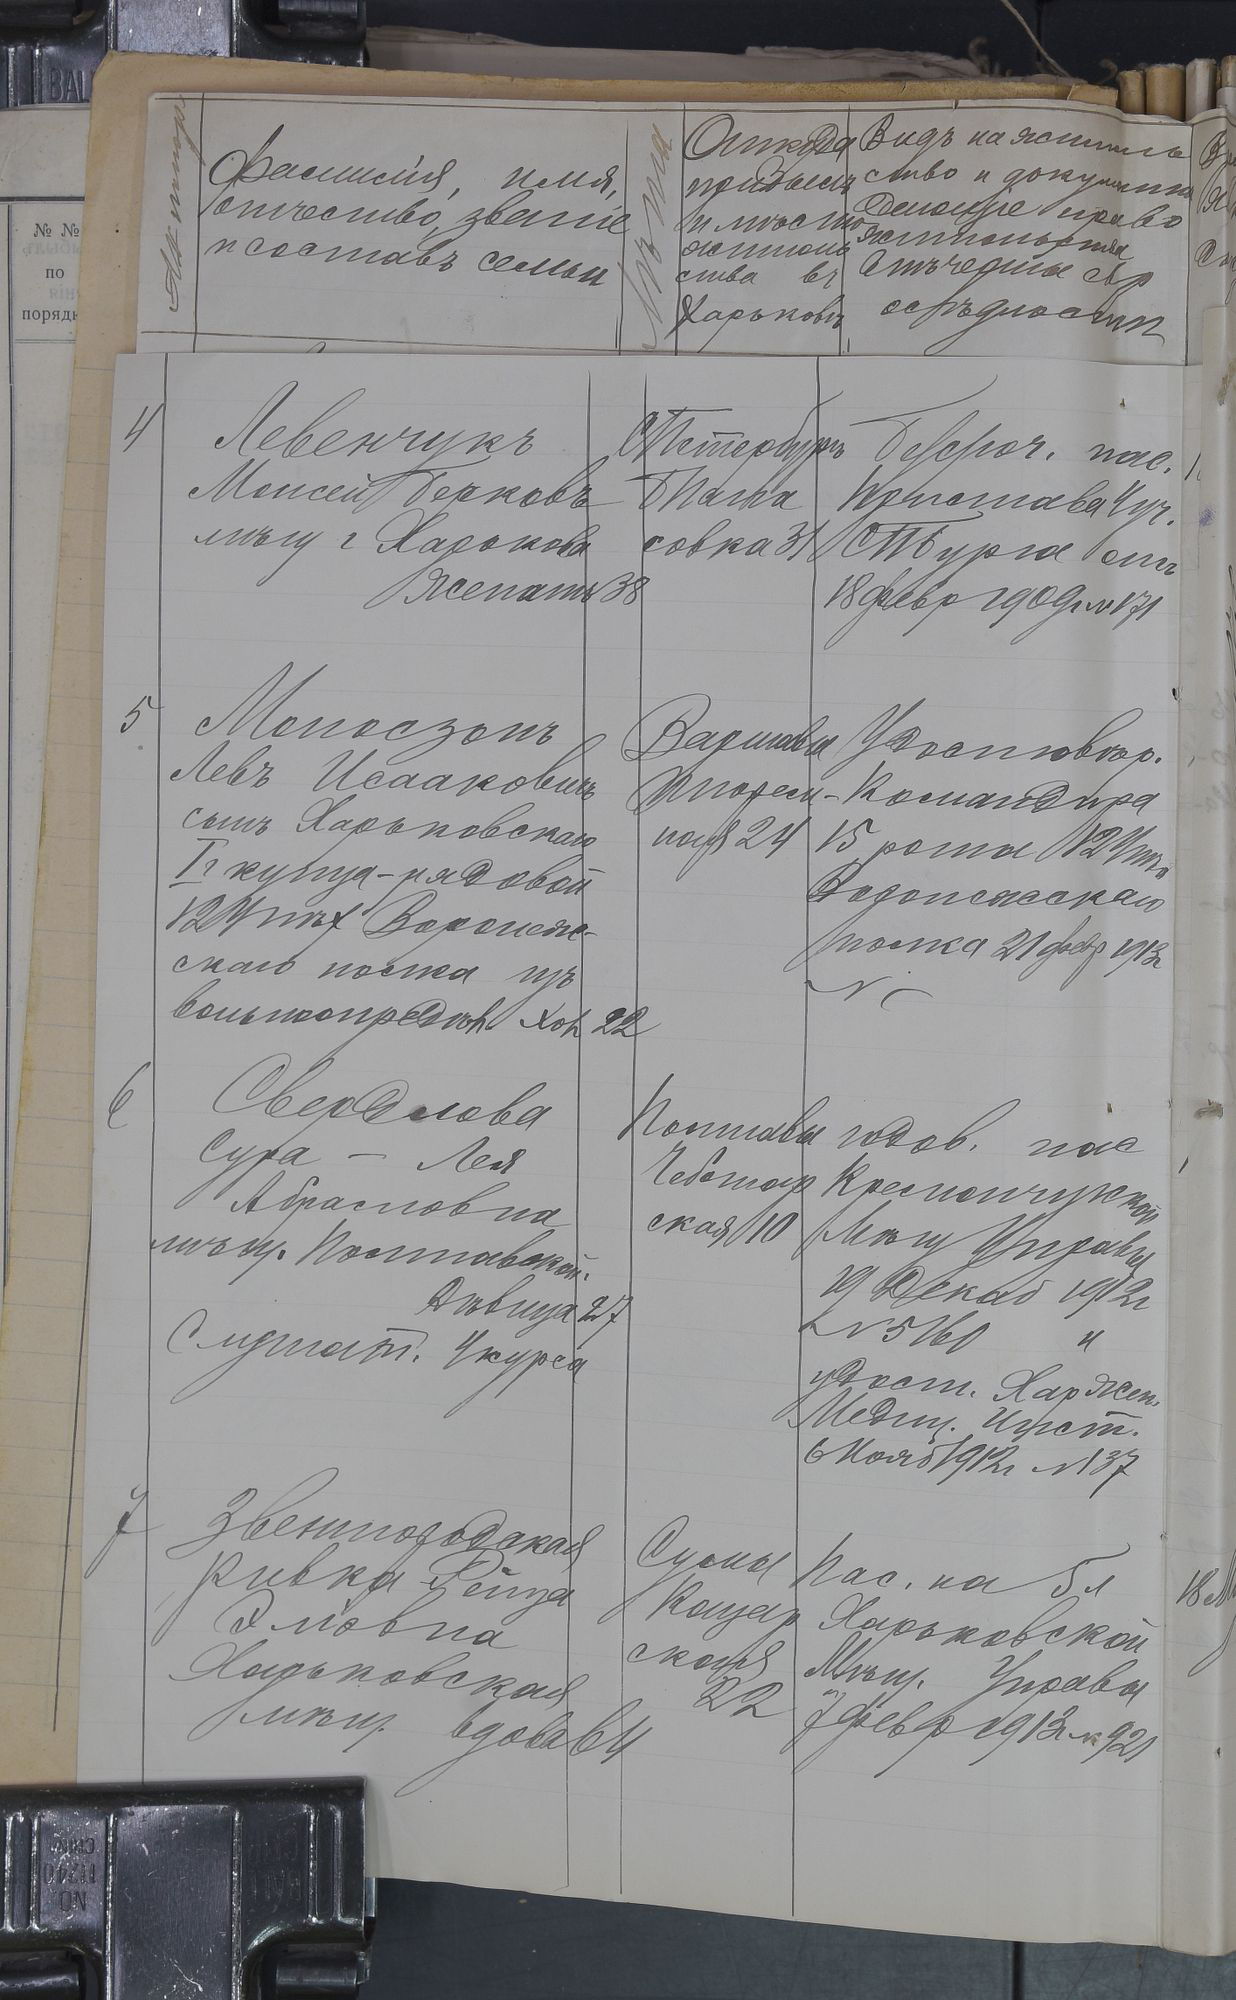 №№ по порядк
Фамилія, имя,
отчество, званіе
и составъ семьи
Лѣта
Откуда
прибылъ
и мѣсто
житель
ства въ
Харьковѣ
Видъ на житель
ство и документы
дающіе право
жительства
внѣ черты ев
осѣдлости
4
Левенчукъ
Моисей Берковъ
мѣщ г Харькова
женатъ 38
СПетербургъ
совка 31
Безсроч. пас.
Пристава 4 уч.
СПБурга отъ
18 февр 1909 г № 171
5
Моносзонъ
Левъ Исааковичъ
сынъ Харьковскаго
I г купца - рядовой
124 пѣх Воронеж-
скаго полка изъ
вольноопредѣл Хол 22
Варшавы
24
Удостовѣр.
Командира
15 роты 124 пѣх
Воронежскаго
полка 21 февр 1913 г
№
6
Свердлова
Сура - Лея
Абрамовна
мѣщ. Полтавской.
Дѣвица 27
Слушат. 4 курса
Полтавы
Чеботар
ская 10
годов. пас
Кременчугской
Мѣщ Управы
19 Декаб 1912 г
№ 5160 и
удост. Хар Жен.
Медиц. Инст.
6 Нояб 1912 г № 137
7
Звенигородская
Ривка Рейза
Эліовна
Харьковская
мѣщ. вдова 64
Сумы
Кацар
ская
22
Пас. на 5 л
Харьковской
Мѣщ. Управы
7 Февр 1913 г № 921
18